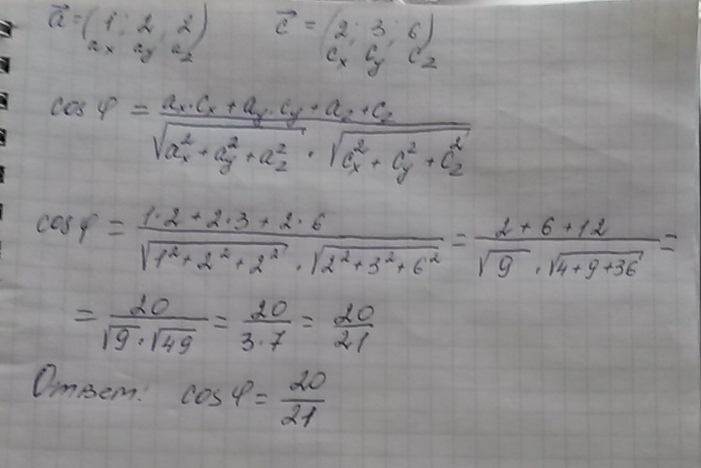 a⃗ = (1; 2; 2) c⃗ = (2; 3; 6)
aₓ a_y a_z cₓ c_y c_z
cos φ = (aₓ·cₓ + a_y·c_y + a_z + c_z) / (√(aₓ² + a_y² + a_z²) · √(cₓ² + c_y² + c_z²))
cos φ = (1·2 + 2·3 + 2·6) / (√(1² + 2² + 2²) · √(2² + 3² + 6²)) = (2 + 6 + 12) / (√9 · √(4 + 9 + 36)) =
= 20 / (√9 · √49) = 20 / (3·7) = 20 / 21
Ответ: cos φ = 20 / 21